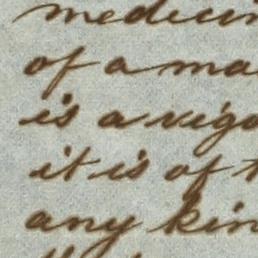 medicin
of a ma
is a vigo
it is of t
any kin